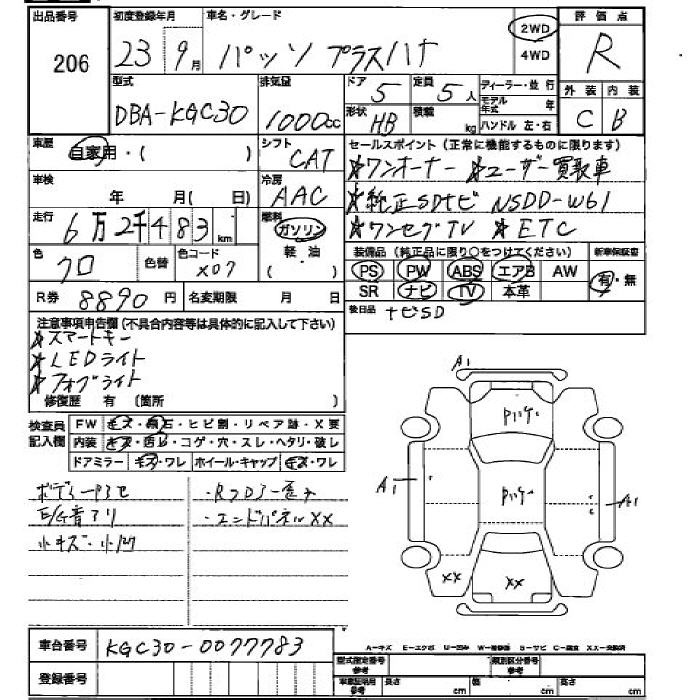 出品番号 初度登録年月 車名・グレード 評価点
206 23 9月 パッソ プラスハナ 2WD 4WD R
型式 排気量 ドア 定員 ディーラー・並行 外装 内装
DBA-KGC30 1000cc 5 5人 モデル年式 年 C B
形状 HB 積載 kg ハンドル 左・右
車歴 自家用・( ) シフト CAT セールスポイント(正常に機能するものに限ります)
★ワンオーナー ★ユーザー買取車
車検 年 月( 日) 冷房 AAC ★純正SDナビ NSDD-W61
走行 6万2千483km 燃料 ガソリン ★ワンセグTV ★ETC
色 クロ 色替 色コード X07 軽油 ( )
装備品(純正品に限り○をつけてください) 新車保証書
PS PW ABS エアB AW 有・無
SR ナビ TV 本革
R券 8890円 名変期限 月 日 後日品 ナビSD
注意事項申告欄(不具合内容等は具体的に記入して下さい)
★スマートキー
★LEDライト
★フォグライト
修復歴 有 (箇所 )
検査員記入欄 FW キズ・飛石・ヒビ割・リペア跡・X要
内装 キズ・汚レ・コゲ・穴・スレ・ヘタリ・破レ
ドアミラー キズ・ワレ ホイール・キャップ キズ・ワレ
E/G音アリ ・エンドパネルXX
小キズ・小凹
A1
A1
A1
XX XX
車台番号 KGC30-0077783
登録番号
A-キズ E-エクボ U-凹み W-補修跡 S-サビ C-腐食 XX-交換済
型式指定番号 参考 類別区分番号 参考
車庫証明用 参考 長さ cm 幅 cm 高さ cm